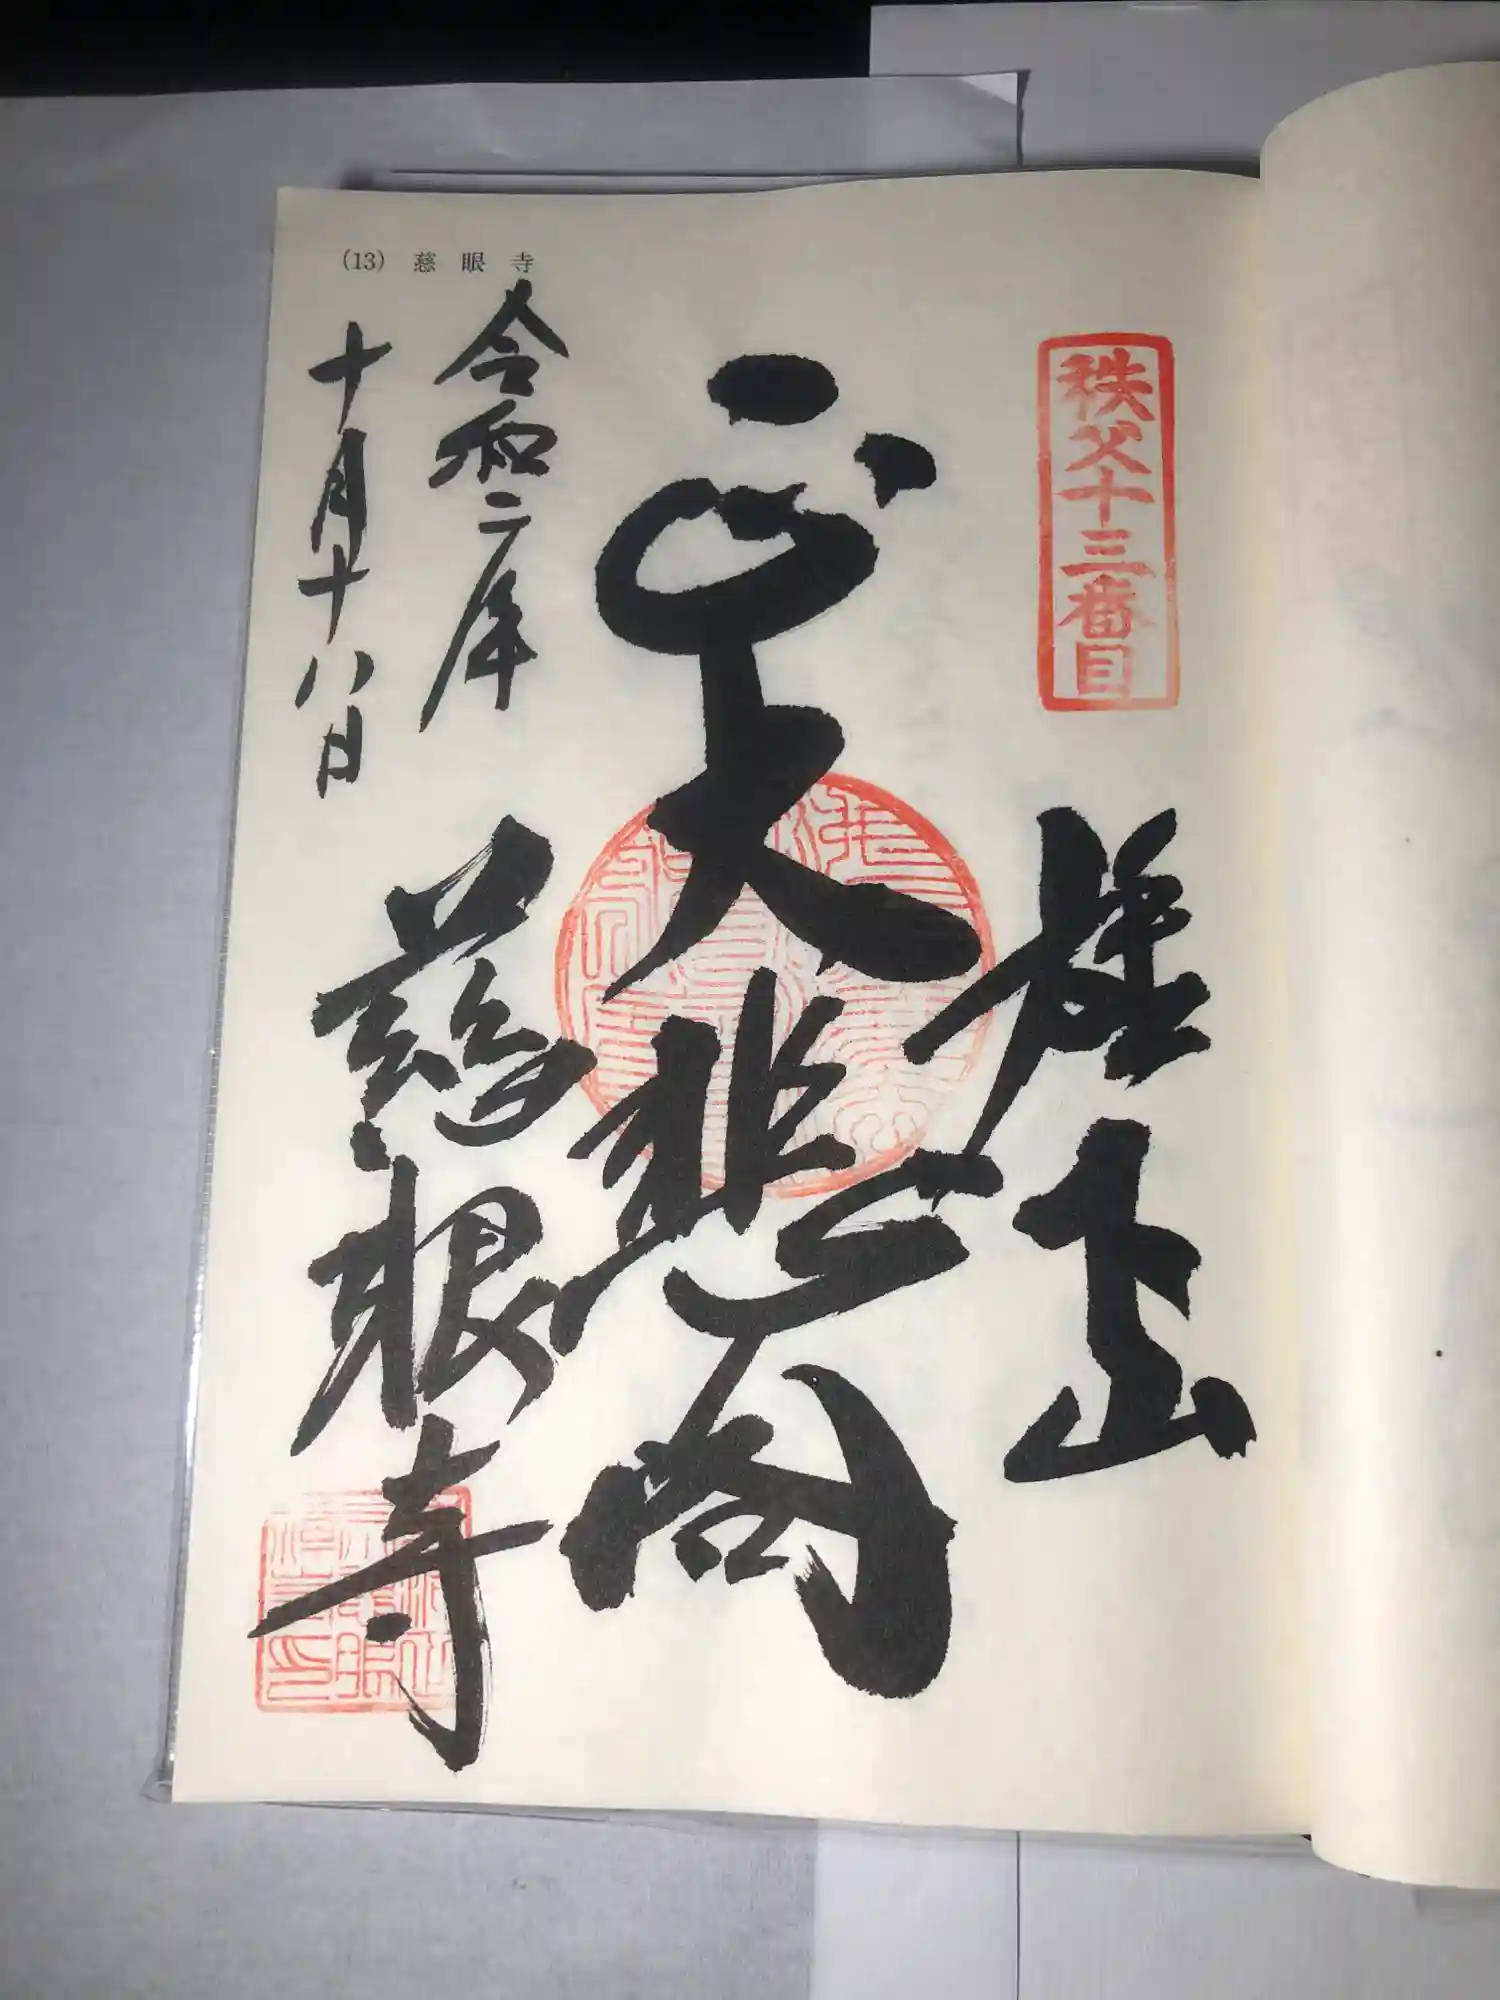 (13) 慈眼寺
秩父十三番目
旗下山
大悲閣
令和二年
十月十八日
慈眼寺